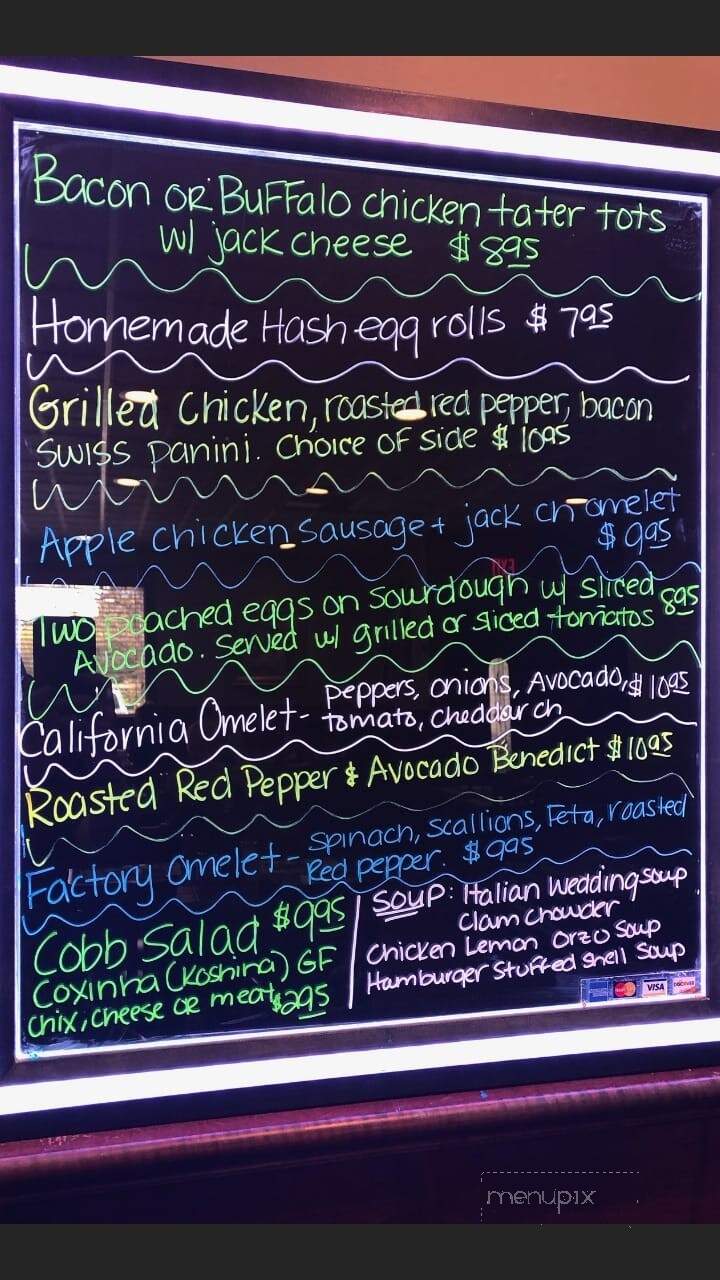 Bacon or Buffalo chicken tater tots
w/ jack cheese $ 8 95
Homemade Hash egg rolls $ 7 95
Grilled Chicken, roasted red pepper, bacon
Swiss panini. Choice of side $ 10 95
Apple chicken sausage + jack ch omelet
$ 9 95
Two poached eggs on sourdough w/ sliced 8 95
Avocado. Served w/ grilled or sliced tomatos
California Omelet - peppers, onions, Avocado, $ 10 95
tomato, cheddar ch
Roasted Red Pepper & Avocado Benedict $ 10 95
Factory omelet - spinach, scallions, Feta, roasted
Red pepper. $ 9 95
Cobb Salad $ 9 95
Coxinha (Koshina) GF
chix, cheese or meat $ 2 95
Soup: Italian Wedding soup
Clam chowder
Chicken Lemon Orzo Soup
Hamburger Stuffed shell Soup
VISA
DISCOVER
menupix